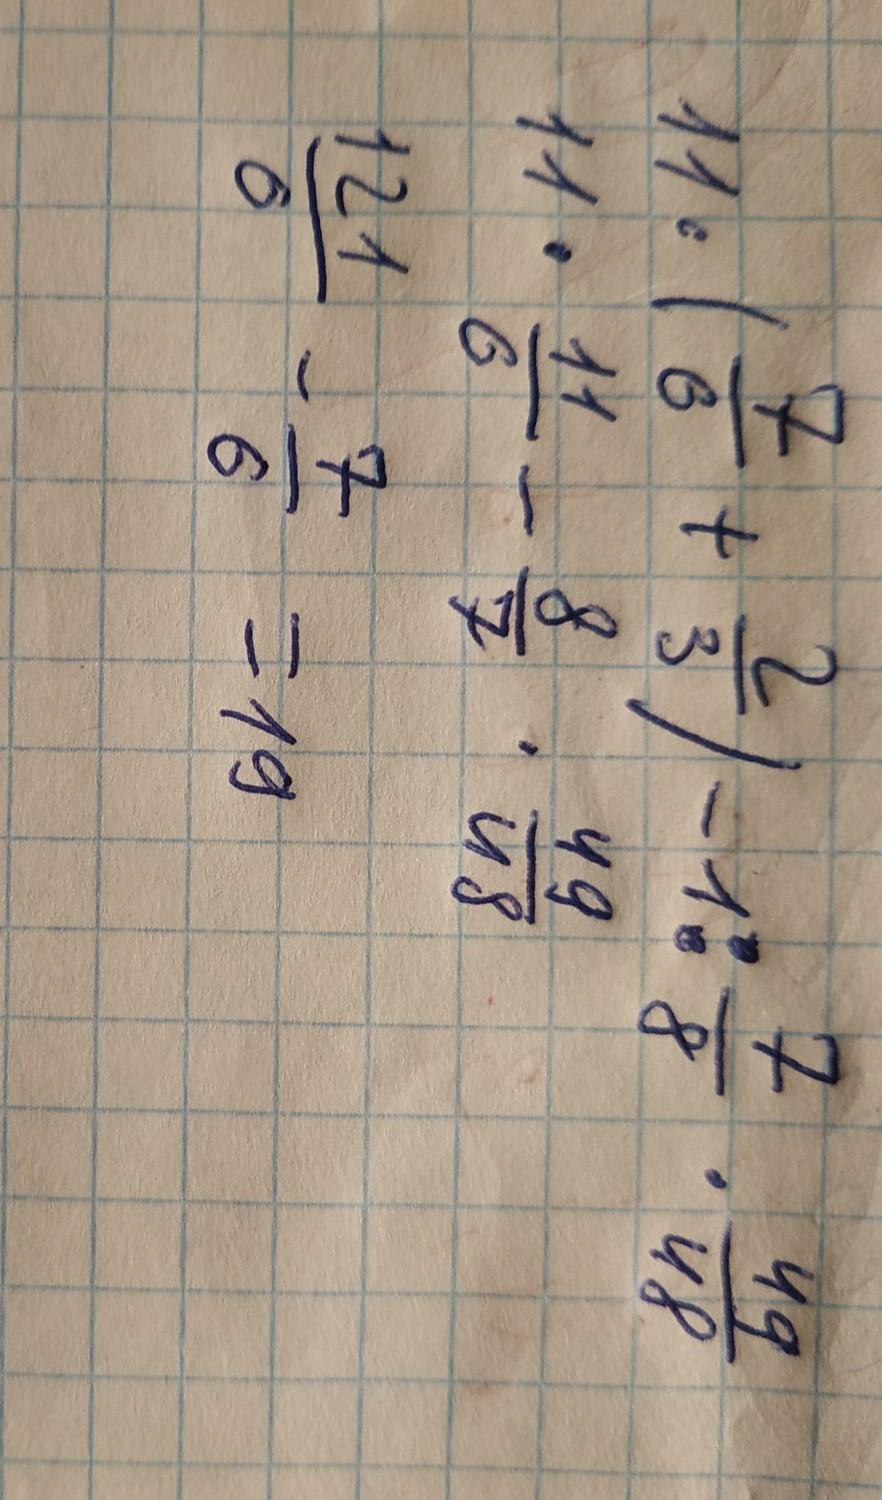 11 · (7/6 + 2/3) - 1 : 7/8 · 49/48
11 · 11/6 - 8/7 · 49/48
121/6 - 7/6 = 19